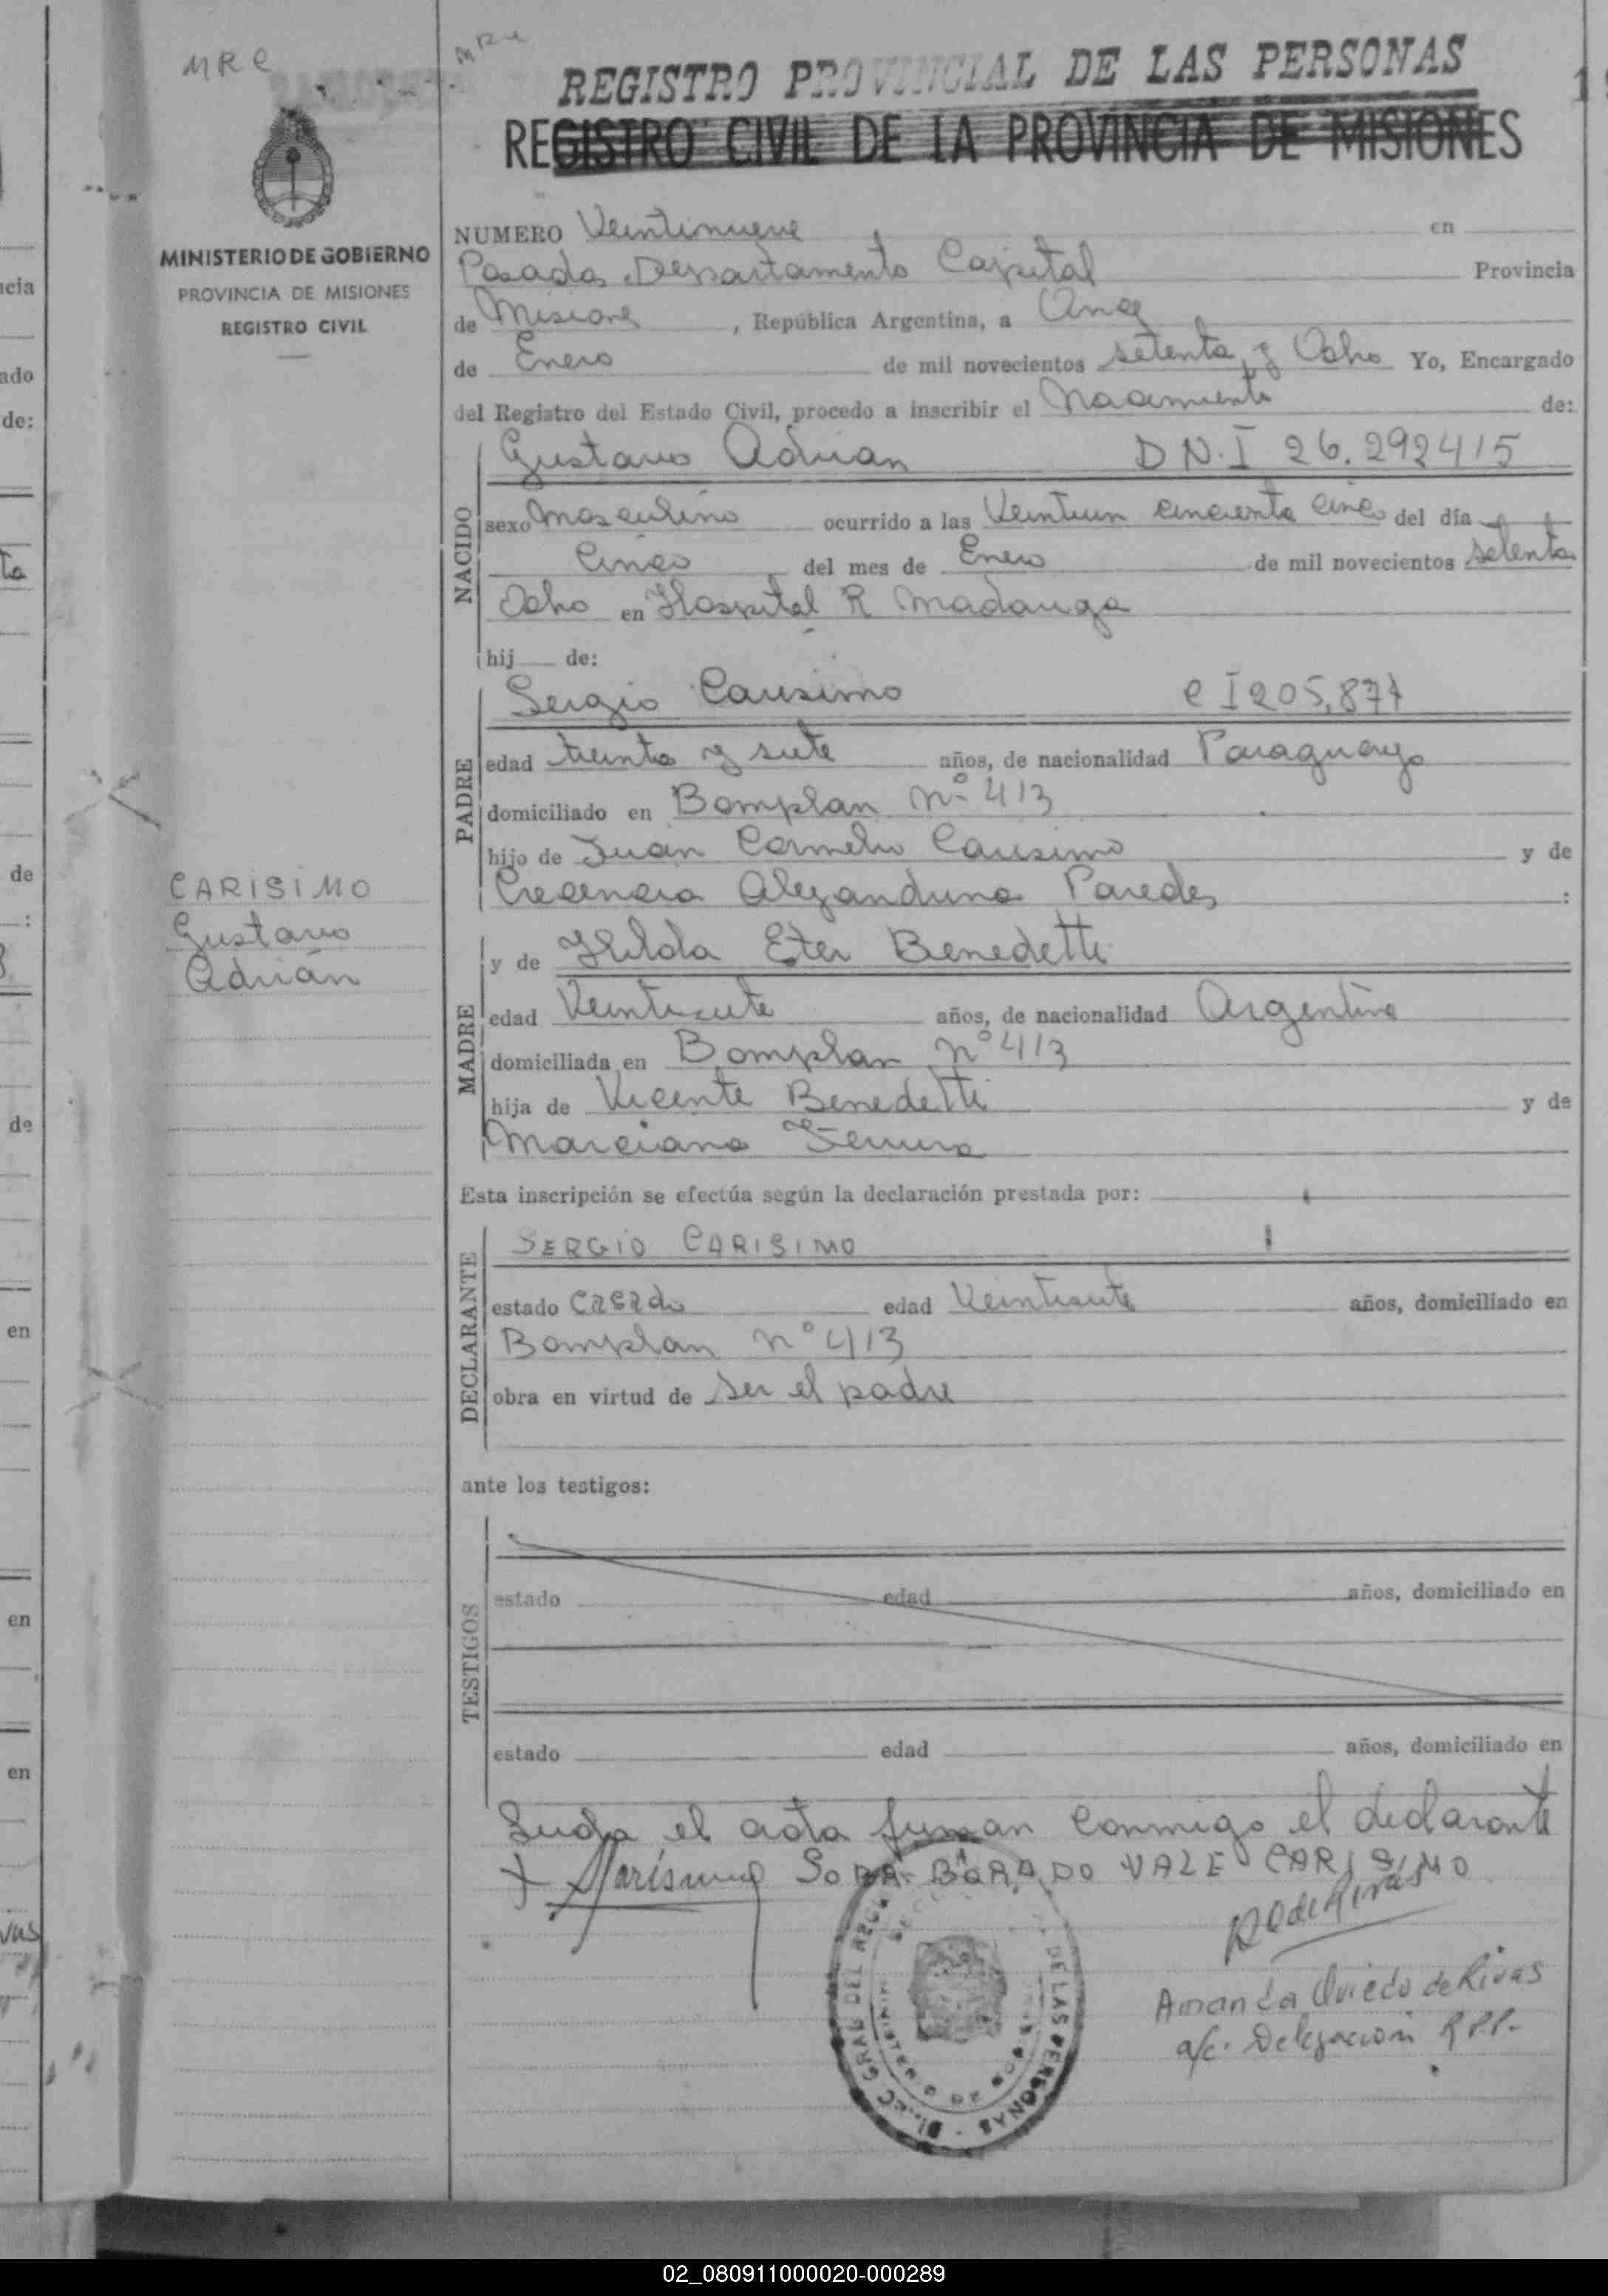 MRC
MRC
REGISTRO PROVINCIAL DE LAS PERSONAS
REGISTRO CIVIL DE LA PROVINCIA DE MISIONES
MINISTERIO DE GOBIERNO
PROVINCIA DE MISIONES
REGISTRO CIVIL
CARISIMO
Gustavo
Adrián
NUMERO Veintinueve en
Posadas Departamento Capital Provincia
de Misiones, República Argentina, a Once
de Enero de mil novecientos setenta y Ocho Yo, Encargado
del Registro del Estado Civil, procedo a inscribir el Nacimiento de:
NACIDO
Gustavo Adrian D N. I 26.292415
sexo Masculino ocurrido a las Veintiun cincuenta cinco del día
Cinco del mes de Enero de mil novecientos setenta
Ocho en Hospital R Madariaga
hij de:
PADRE
Sergio Carisimo C I 205,877
edad treinta y siete años, de nacionalidad Paraguayo
domiciliado en Bomplan Nº 413
hijo de Juan Carmelo Carisimo y de
Crecencia Alejandrina Paredes :
MADRE
y de Hilda Eter Benedetti
edad Veintisiete años, de nacionalidad Argentina
domiciliada en Bomplan Nº 413
hija de Vicente Benedetti y de
Marciana Ferreira
Esta inscripción se efectúa según la declaración prestada por:
DECLARANTE
SERGIO CARISIMO
estado casado edad Veintisiete años, domiciliado en
Bomplan Nº 413
obra en virtud de ser el padre
ante los testigos:
TESTIGOS
estado edad años, domiciliado en
estado edad años, domiciliado en
Leida el acta firman conmigo el declarante
Carisimo SOBA-BORADO VALE CARISIMO
AOdeRivas
Amanda Oviedo de Rivas
a/c. Delegación R.P.P.-
GRAL DEL REG DE LAS PERSONAS
02_080911000020-000289